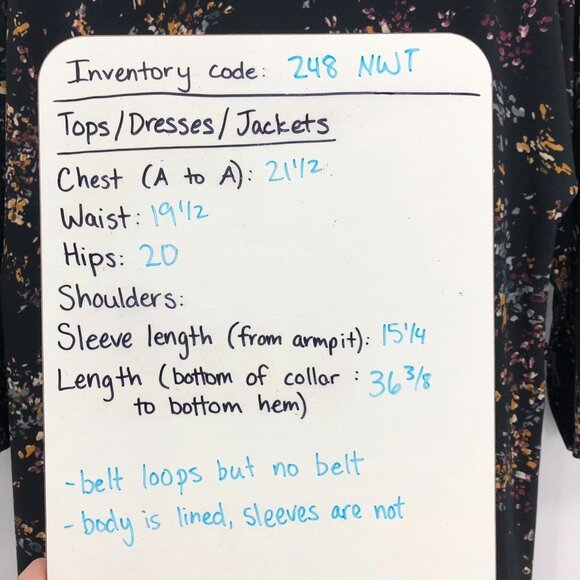 Inventory code: 248 NWT
Tops/Dresses/Jackets
Chest (A to A): 21 1/2
Waist: 19 1/2
Hips: 20
Shoulders:
Sleeve length (from armpit): 15 1/4
Length (bottom of collar : 36 3/8
to bottom hem)
-belt loops but no belt
-body is lined, sleeves are not